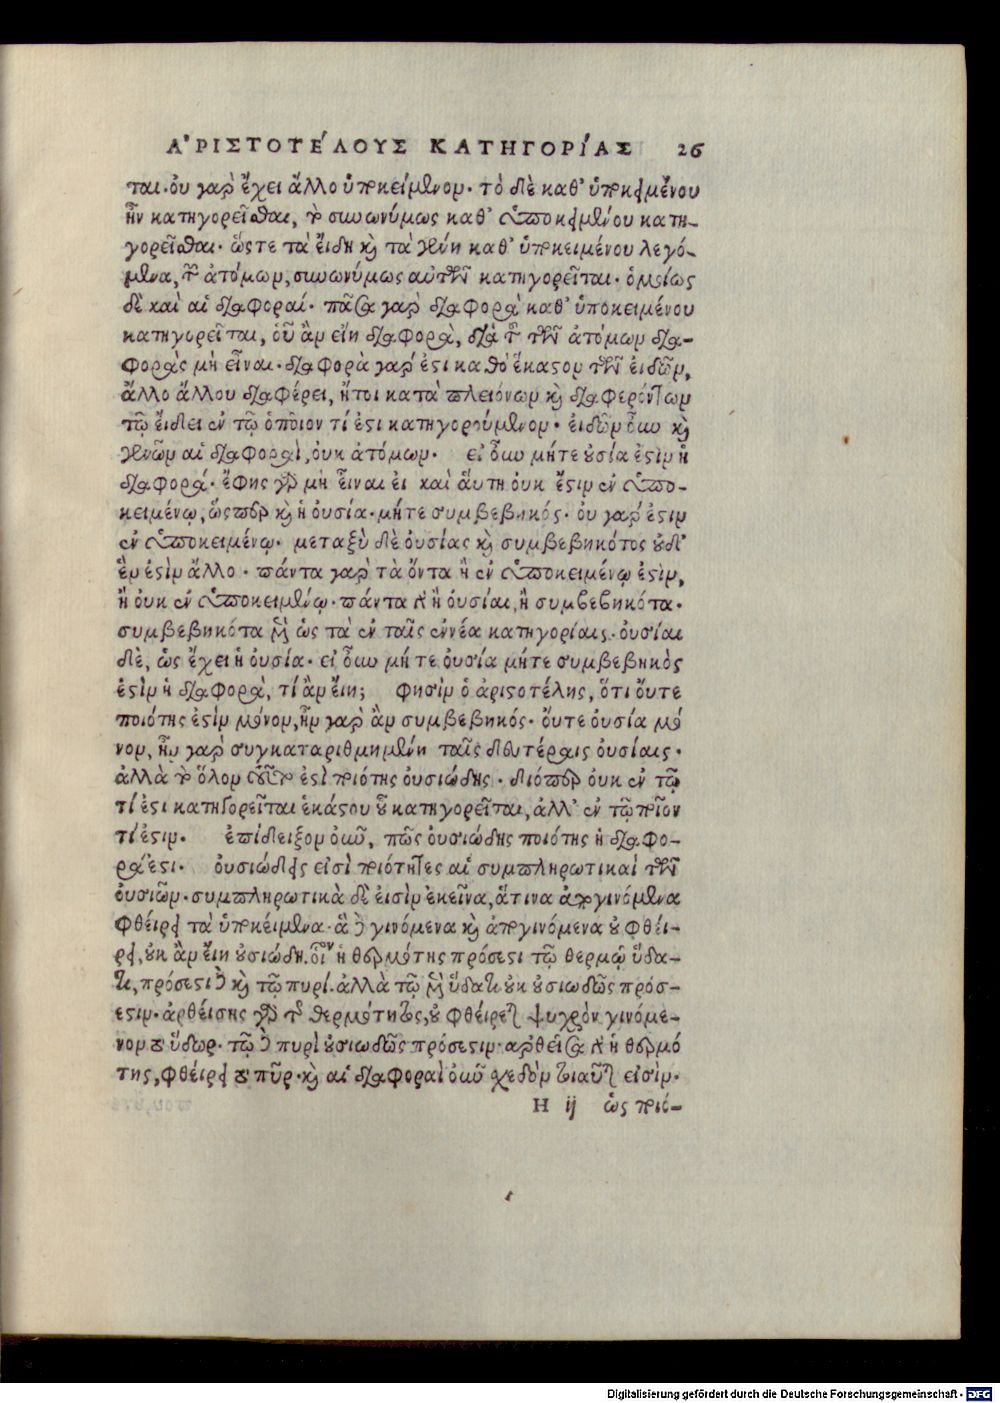 ἈΡΙΣΤΟΤΈΛΟΥΣ ΚΑΤΗΓΟΡΊΑΣ 26
ται· οὐ γὰρ ἔχει ἄλλο ὑποκείμενον· τὸ δὲ καθ' ὑποκειμένου
ἦν κατηγορεῖσθαι, τὸ συνωνύμως καθ' ὑποκειμένου κατη-
γορεῖσθαι· ὥςτε τὰ εἴδη καὶ τὰ γένη καθ' ὑποκειμένου λεγό-
μενα, τῶν ἀτόμων, συνωνύμως αὐτῶν κατηγορεῖται· ὁμοίως
δὲ καὶ αἱ διαφοραί· πᾶσα γὰρ διαφορὰ καθ' ὑποκειμένου
κατηγορεῖται, οὗ ἂν εἴη διαφορὰ, διὰ τὸ τῶν ἀτόμων δια-
φορὰς μὴ εἶναι· διαφορὰ γάρ ἐστι καθὸ ἕκαστον τῶν εἰδῶν,
ἄλλο ἄλλου διαφέρει, ἤτοι κατὰ πλειόνων καὶ διαφερόντων
τῷ εἴδει ἐν τῷ ὁποῖον τί ἐστι κατηγορούμενον· εἰδῶν οὖν καὶ
γενῶν αἱ διαφοραὶ, οὐκ ἀτόμων· εἰ οὖν μήτε οὐσία ἐστὶν ἡ
διαφορά· ἔφης γὰρ μὴ εἶναι εἰ καὶ αὕτη οὐκ ἔστιν ἐν ὑπο-
κειμένῳ, ὥςπερ καὶ ἡ οὐσία· μήτε συμβεβηκός· οὐ γάρ ἐστιν
ἐν ὑποκειμένῳ· μεταξὺ δὲ οὐσίας καὶ συμβεβηκότος οὐδ'
ἓν ἐστὶν ἄλλο· πάντα γὰρ τὰ ὄντα ἢ ἐν ὑποκειμένῳ ἐστὶν,
ἢ οὐκ ἐν ὑποκειμένῳ· πάντα δὲ ἢ οὐσίαι, ἢ συμβεβηκότα·
συμβεβηκότα μὲν ὡς τὰ ἐν ταῖς ἐννέα κατηγορίαις· οὐσίαι
δὲ, ὡς ἔχει ἡ οὐσία· εἰ οὖν μήτε οὐσία μήτε συμβεβηκὸς
ἐστὶν ἡ διαφορὰ, τί ἂν εἴη; φησὶν ὁ ἀριστοτέλης, ὅτι οὔτε
ποιότης ἐστὶν μόνον, ἦν γὰρ ἂν συμβεβηκός· οὔτε οὐσία μό
νον, ἦν γὰρ συγκαταριθμημένη ταῖς δευτέραις οὐσίαις·
ἀλλὰ τὸ ὅλον τοῦτο ἐστὶ ποιότης οὐσιώδης· διόπερ οὐκ ἐν τῷ
τί ἐστι κατηγορεῖται ἑκάστου οὗ κατηγορεῖται, ἀλλ' ἐν τῷ ποῖον
τί ἐστιν. ἐπίδειξον οὖν, πῶς οὐσιώδης ποιότης ἡ διαφο-
ρά ἐστι· οὐσιώδεις εἰσὶ ποιότητες αἱ συμπληρωτικαὶ τῶν
οὐσιῶν· συμπληρωτικὰ δὲ εἰσὶν ἐκεῖνα, ἅτινα ἀπογινόμενα
φθείρει τὰ ὑποκείμενα· ἃ δὲ γινόμενα καὶ ἀπογινόμενα οὐ φθεί-
ρει, οὐκ ἂν εἴη οὐσιώδη. οἷον ἡ θερμότης πρόσεστι τῷ θερμῷ ὕδα-
τι, πρόσεστι δὲ καὶ τῷ πυρί· ἀλλὰ τῷ μὲν ὕδατι οὐκ οὐσιωδῶς πρόσ-
εστιν· ἀρθείσης γὰρ τῆς θερμότητος, οὐ φθείρεται ψυχρὸν γινόμε-
νον τὸ ὕδωρ· τῷ δὲ πυρὶ οὐσιωδῶς πρόσεστιν· ἀρθεῖσα δὲ ἡ θερμό
της, φθείρει τὸ πῦρ· καὶ αἱ διαφοραὶ οὖν σχεδὸν τοιαῦται εἰσίν·
H ij ὡς ποιό-
Digitalisierung gefördert durch die Deutsche Forschungsgemeinschaft - DFG